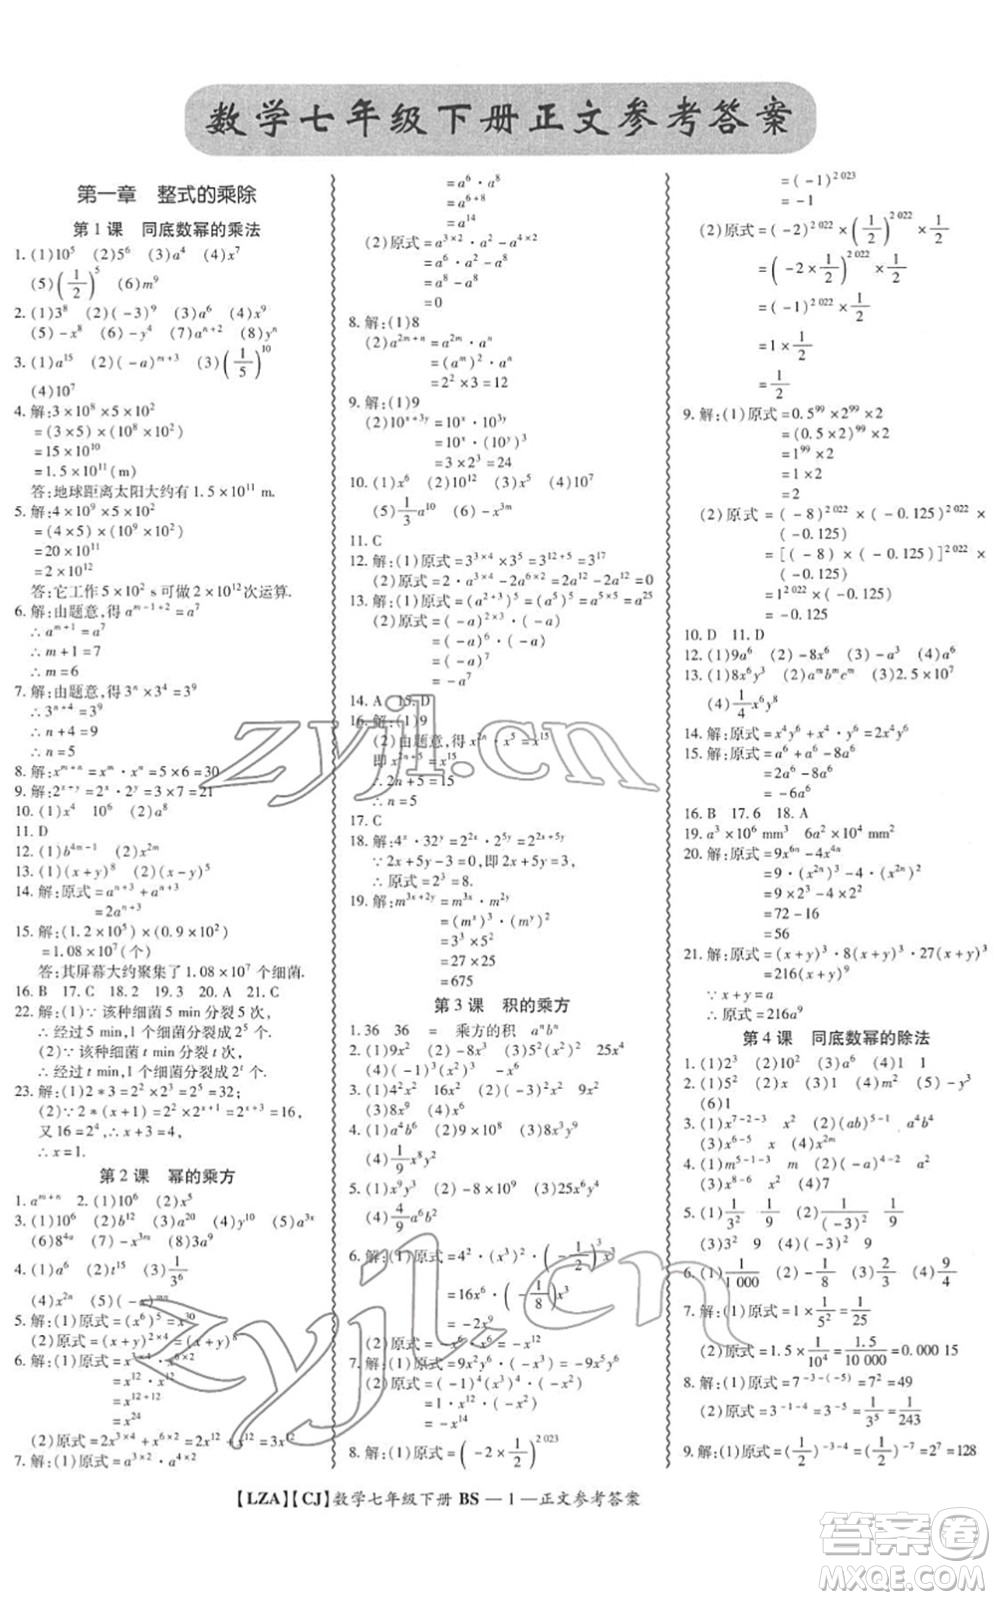 数学七年级下册正文参考答案
第一章 整式的乘除
第1课 同底数幂的乘法
1. (1)10⁵ (2)5⁶ (3)a⁴ (4)x⁷
(5)(1/2)⁵ (6)m⁹
2. (1)3⁸ (2)(-3)⁹ (3)a⁶ (4)x⁹
(5)-x⁸ (6)-y⁴ (7)aⁿ⁺² (8)yⁿ
3. (1)a¹⁵ (2)(-a)ᵐ⁺³ (3)(1/5)¹⁰
(4)10⁷
4. 解:3×10⁸×5×10²
=(3×5)×(10⁸×10²)
=15×10¹⁰
=1.5×10¹¹(m)
答:地球距离太阳大约有1.5×10¹¹ m.
5. 解:4×10⁹×5×10²
=(4×5)×(10⁹×10²)
=20×10¹¹
=2×10¹²
答:它工作5×10² s可做2×10¹²次运算.
6. 解:由题意,得aᵐ⁻¹⁺²=a⁷
∴aᵐ⁺¹=a⁷
∴m+1=7
∴m=6
7. 解:由题意,得3ⁿ×3⁴=3⁹
∴3ⁿ⁺⁴=3⁹
∴n+4=9
∴n=5
8. 解:xᵐ⁺ⁿ=xᵐ·xⁿ=5×6=30
9. 解:2ˣ⁺ʸ=2ˣ·2ʸ=3×7=21
10. (1)x⁴ 10⁶ (2)a⁸
11. D
12. (1)b⁴ᵐ⁻¹ (2)x²ᵐ
13. (1)(x+y)⁵ (2)(x-y)⁵
14. 解:原式=aⁿ⁺³+aⁿ⁺³
=2aⁿ⁺³
15. 解:(1.2×10⁵)×(0.9×10²)
=1.08×10⁷(个)
答:其屏幕大约聚集了1.08×10⁷个细菌.
16. B 17. C 18. 2 19. 3 20. A 21. C
22. 解:(1)∵该种细菌5 min分裂5次,
∴经过5 min,1个细菌分裂成2⁵个
(2)∵该种细菌t min分裂t次,
∴经过t min,1个细菌分裂成2ᵗ个
23. 解:(1)2*3=2²×2³=2⁵=32;
(2)∵2*(x+1)=2²×2ˣ⁺¹=16,
又16=2⁴,∴2+x+1=4,
∴x=1.
第2课 幂的乘方
1. aᵐ⁺ⁿ 2. (1)10⁶ (2)x⁵
3. (1)10⁶ (2)b¹² (3)a²⁰ (4)y¹⁰ (5)a³ˣ
(6)8⁴ᵃ (7)-y⁶ (8)3a
4. (1)a⁶ (2)t¹⁵ (3)1/3⁶
(4)x²ⁿ (5)(-x)ᵐⁿ
5. 解:(1)原式=(x⁶)⁵=x³⁰
(2)原式=(x+y)²ˣ⁴=(x+y)⁸
6. 解:(1)原式=x³ˣ⁴·x⁶ˣ²
=x¹²·x¹²
=x¹²⁺¹²
=x²⁴
(2)原式=2x³ˣ²+x⁶ˣ²=2x⁶+x¹²
7. 解:(1)原式=a³ˣ²·a⁴ˣ²
=a⁶·a⁸
=a⁶⁺⁸
=a¹⁴
(2)原式=a³ˣ²·a²-a⁸
=a⁶·a²-a⁸
=a⁸-a⁸
=0
8. 解:(1)8
(2)a²ᵐ⁺ⁿ=a²ᵐ·aⁿ
=(aᵐ)²·aⁿ
=2²×3
=12
9. 解:(1)9
(2)10ˣ⁺³ʸ=10ˣ·10³ʸ
=10ˣ·(10ʸ)³
=3×2³=24
10. (1)x⁶ (2)10¹² (3)x⁵ (4)10⁷
(5)1/3 a¹⁰ (6)-x³ᵐ
11. C
12. 解:(1)原式=3³ˣ⁴×3⁵=3¹²⁺⁵=3¹⁷
(2)原式=2·a³ˣ⁴-2a¹²=2a¹²-2a¹²=0
13. 解:(1)原式=(a²⁺³)⁵=(a⁵)⁵=a⁵ˣ⁵=a²⁵
(2)原式=(-a)²ˣ³·(-a)
=(-a)⁶·(-a)
=(-a)⁷
=-a⁷
14. A 15. D
16. 解:(1)9
(2)由题意,得x²ⁿ·x⁵=x¹⁵
即x²ⁿ⁺⁵=x¹⁵
∴2n+5=15
∴n=5
17. C
18. 解:4ˣ·32ʸ=2²ˣ·2⁵ʸ=2²ˣ⁺⁵ʸ
∵2x+5y-3=0,即2x+5y=3,
∴原式=2³=8.
19. 解:m³ˣ⁺²ʸ=m³ˣ·m²ʸ
=(mˣ)³·(mʸ)²
=3³×5²
=27×25
=675
第3课 积的乘方
1. 36 36 = 乘方的积 aⁿbⁿ
2. (1)9x² (2)-8b³ (3)-5 2 25x⁴
(4)(-1)³(x²)³ -1·x⁶ -x⁶
3. (1)a²b² (2)4x² (3)a²b²
(3)8x³ (4)x⁸
4. (1)a⁴b⁶ (2)9×10⁴ (3)8x³y⁶
(4)1/9 x⁸y²
5. (1)x⁹y³ (2)-8m⁶ (3)25x⁶y²
(4)4/9 a⁶b²
6. 解:(1)原式=4²·(x³)²·(-1/2)³x³
=16x⁶·(-1/8)x³
=-2x⁹
(2)原式=-x²·x¹⁰=-x¹²
7. 解:(1)原式=9x²y⁶-x²y⁶=8x²y⁶
(2)原式=(-1)⁴(x³)⁴·(-1)·x²
=x¹²·(-1)·x²
=-x¹⁴
8. 解:(1)原式=(-2×1/2)²⁰²³
=(-1)²⁰²³
=-1
(2)原式=(-2)²⁰²²×(1/2)²⁰²²×1/2
=(-2×1/2)²⁰²²×1/2
=(-1)²⁰²²×1/2
=1×1/2
=1/2
9. 解:(1)原式=0.5⁹⁹×2⁹⁹×2
=(0.5×2)⁹⁹×2
=1⁹⁹×2
=1×2
=2
(2)原式=(-8)²⁰²²×(-0.125)²⁰²²×
(-0.125)
=[(-8)×(-0.125)]²⁰²²×
(-0.125)
=1²⁰²²×(-0.125)
=-0.125
10. D 11. D
12. (1)9a⁶ (2)-8x⁶ (3)-a³ (4)x⁶
13. (1)8x⁶y³ (2)aᵐbᵐcᵐ (3)2.5×10⁵
(4)1/4 x⁶y⁸
14. 解:原式=x⁴y⁶+x⁴·y⁶=2x⁴y⁶
15. 解:原式=a⁶+a⁶-8a⁶
=2a⁶-8a⁶
=-6a⁶
16. B 17. 6 18. A
19. a³×10⁶ mm³ 6a²×10⁴ mm²
20. 解:原式=9x⁶ⁿ-4x⁴ⁿ
=9·(x²ⁿ)³-4·(x²ⁿ)²
=9×2³-4×2²
=72-16
=56
21. 解:原式=(x+y)³·8(x+y)³·27(x+y)³
=216(x+y)⁹
∵x+y=a
∴原式=216a⁹
第4课 同底数幂的除法
1. (1)2³ (2)10² (3)a⁶ (4)1 1
2. (1)5² (2)x² (3)2 (4)m² (5)-y³
(6)1
3. (1)x⁷⁻²⁻³ x² (2)(ab)⁵⁻¹ a⁴b⁴
(3)x⁶⁻⁵ x (4)x²ᵐ
4. (1)m⁵⁻⁴ m (2)(-a)² a²
(3)-x⁵ (4)7
5. (1)1/3² 1/9 (2)1/(-3)² 1/9
(3)3² 9 (4)(-3)² 9
6. (1)1/1 000 (2)-1/8 (3)2/3 (4)9/4
7. 解:(1)原式=1×1/5²=1/25
(2)原式=1.5×1/10⁴=1.5/10 000=0.000 15
8. 解:(1)原式=7⁻³⁺⁵=7²=49
(2)原式=3⁻¹⁻⁴=3⁻⁵=1/3⁵=1/243
9. 解:(1)原式=(1/2)⁻³⁻⁴=(1/2)⁻⁷=2⁷=128
【LZA】【CJ】数学七年级下册 BS — 1 —正文参考答案
zyjl.cn
zyjl.cn
答案圈
MXQE.COM